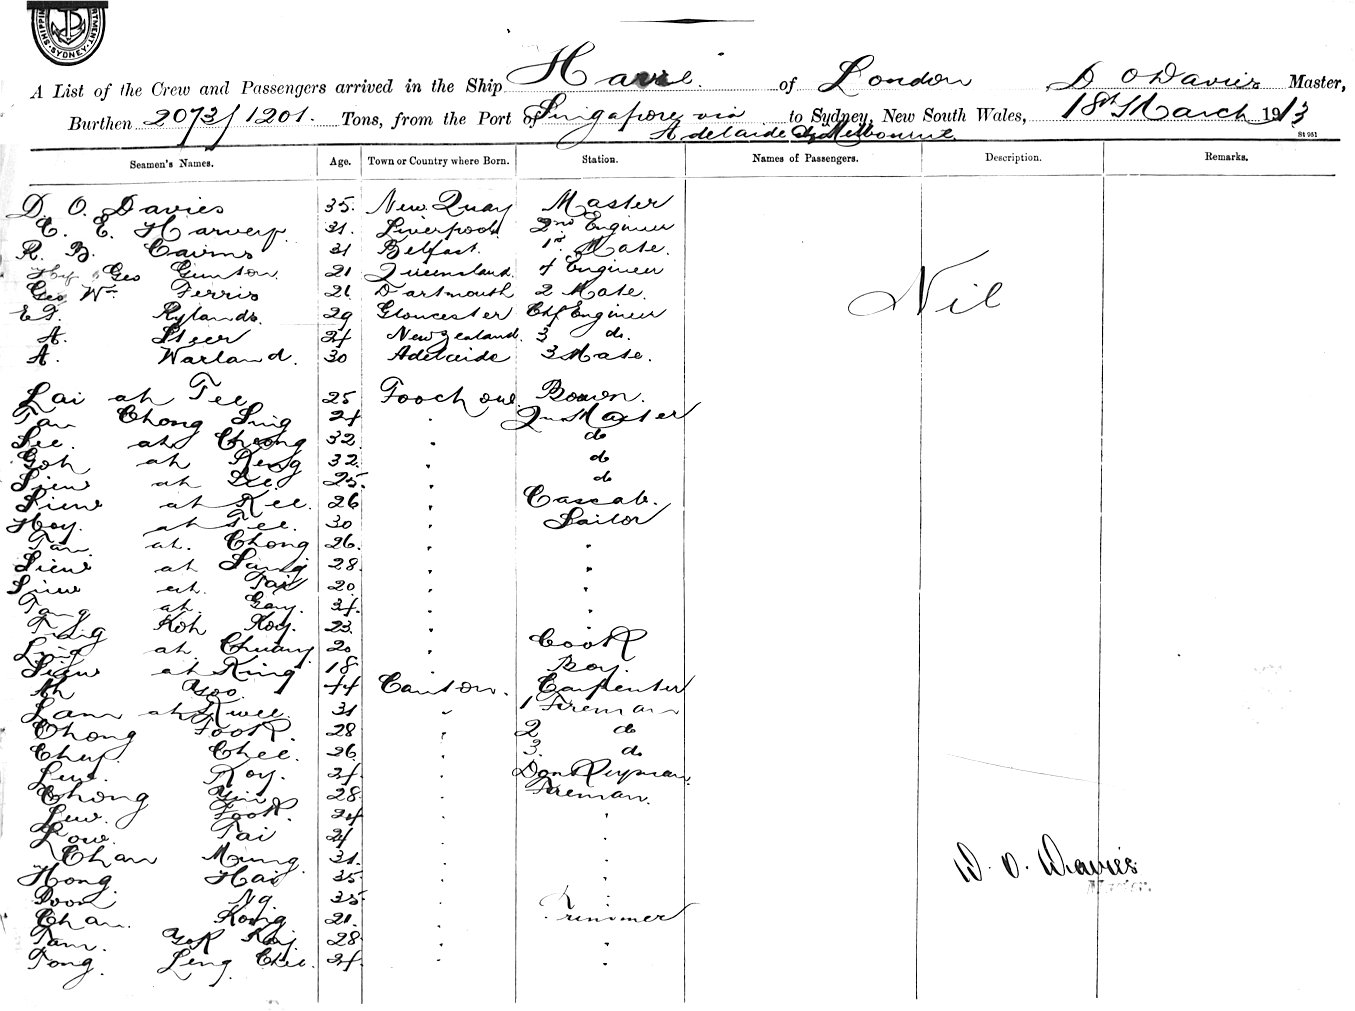 SHIPPING DEPARTMENT. SYDNEY.
A List of the Crew and Passengers arrived in the Ship of London D O Davies Master,
Burthen 2073/1201. Tons, from the Port of Singapore via to Sydney, New South Wales, 18th March 1913
Adelaide & Melbourne
St 951
Seamen's Names. Age. Town or Country where Born. Station. Names of Passengers. Description. Remarks.
D. O. Davies 35. New Quay Master
C. E. Harvey. 31. Liverpool 2nd Engineer
R. B. Cairns 31 Belfast. 1st Mate.
Geo Gunton. 21 Queensland. 4 Engineer
Geo Wm Ferris 21 Dartmouth 2 Mate.
Rylands. 29 Gloucester Chf Engineer
A. Steer 24 New Zealand. 3 do.
A. Warland. 30 Adelaide 3 Mate.
Nil
Lai ah Tee 25 Foochow Bosun.
Tan Chong Sing 24 " Qur Master
Lee. ah Cheong 32 " do
Goh ah Keng 32 " do
Siew ah Lee. 25. " do
Siew ah Kee. 26 " Cassab.
Hoy. ah Tee. 30 " Sailor
Tan. ah. Chong 26. " "
Siew ah Sang 28 " "
Siew ah. Tai 20 " "
Tang ah. Gay. 34. " "
Tang Koh Koy. 23. " "
Ling ah. Chuang 20 " Cook
Siew ah King 18 " Boy.
Ah Yoo 44 Canton. Carpenter
Lam ah Kwee. 31 " 1 Fireman
Chong Fook. 28 " 2 do
Chuf. Chee. 26 " 3. do
Lew. Koy. 24. " Donkeyman.
Chong 28 " Fireman.
Lew. Fook. 34 " "
Low. Tai 24 " "
Chan Mung 31. " "
Hong. Hai 35 " "
Ng. 35. " "
Chan. Kong 21. " Trimmer
Tam. 28 " "
Tong. Leng Chee. 24. " "
D. O. Davies
Master.